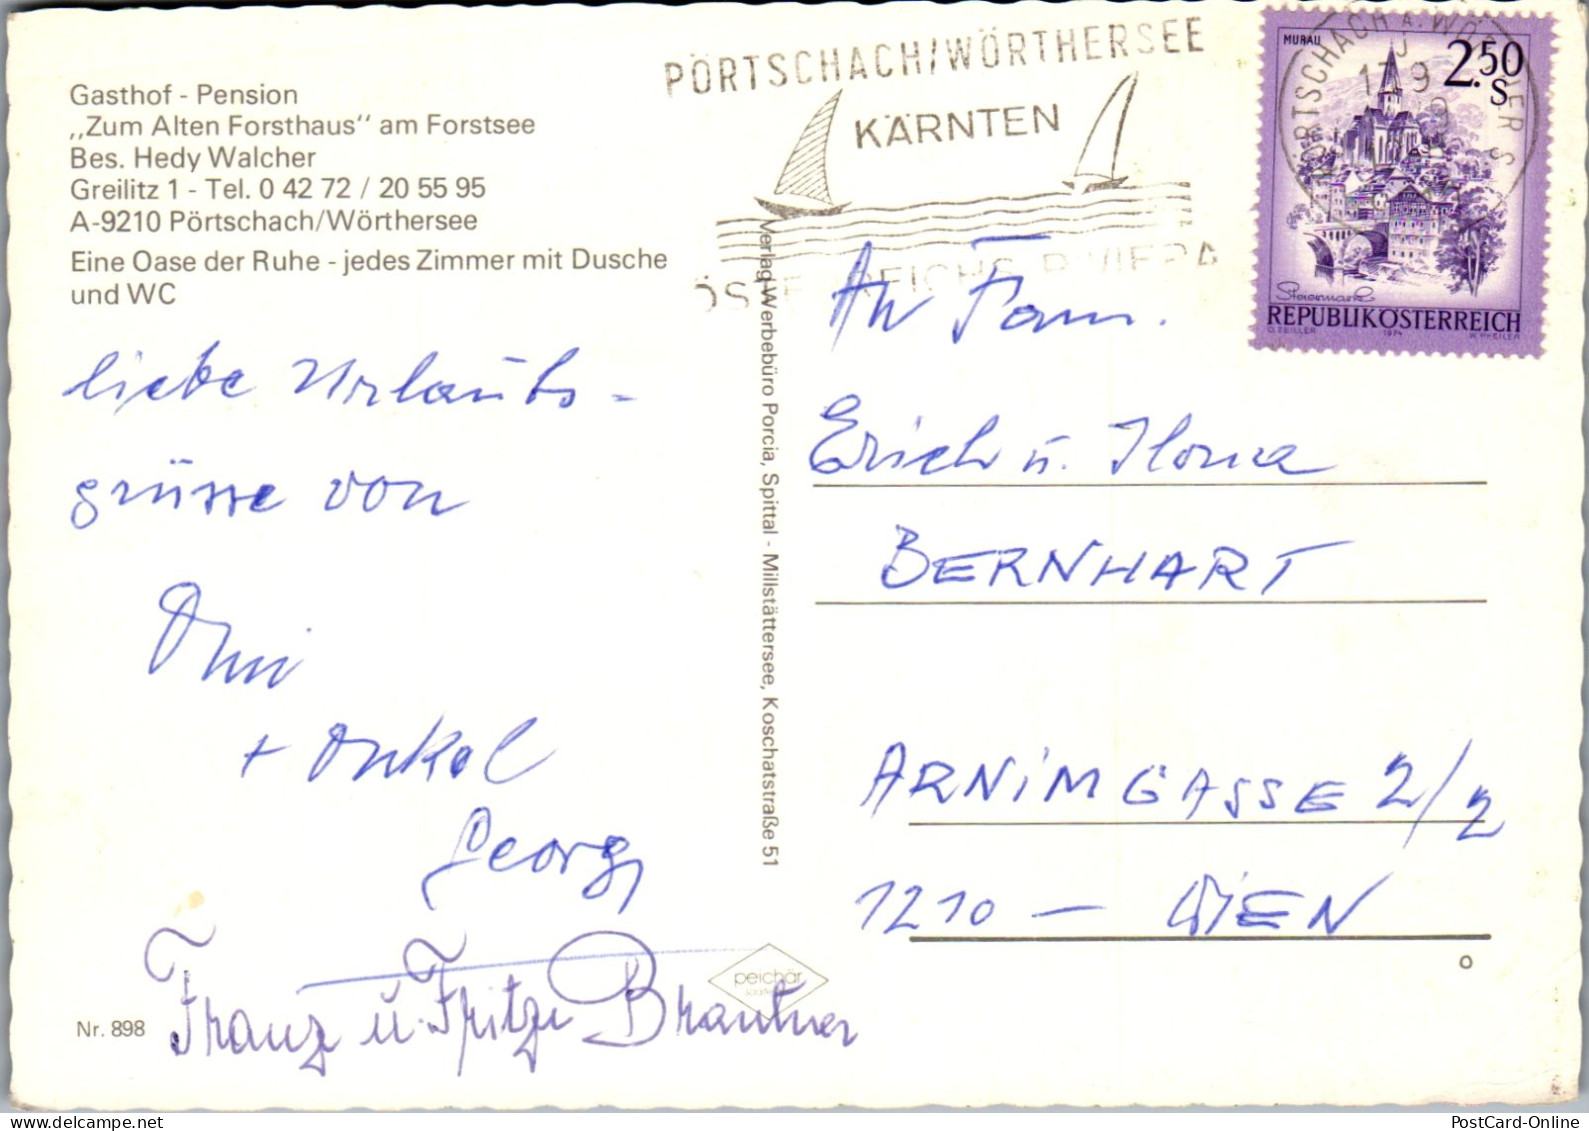 Gasthof - Pension
„Zum Alten Forsthaus" am Forstsee
Bes. Hedy Walcher
Greilitz 1 - Tel. 0 42 72 / 20 55 95
A-9210 Pörtschach/Wörthersee
Eine Oase der Ruhe - jedes Zimmer mit Dusche
und WC
liebe Urlaubs-
grüsse von
Omi
+ Onkel
Georg
Franz u. Fritzi Brantner
Nr. 898
Verlag Werbebüro Porcia, Spittal - Millstättersee, Koschatstraße 51
peichär
PÖRTSCHACH/WÖRTHERSEE
KÄRNTEN
ÖSTERREICHS RIVIERA
PÖRTSCHACH A. WÖRTHER S
17. 9
MURAU
2.50
S
Steiermark
REPUBLIK ÖSTERREICH
O. ZEILLER 1974 W. PFEILER
An Fam.
Erich u. Ilona
BERNHART
ARNIMGASSE 2/2
1210 — WIEN
PostCard-Online